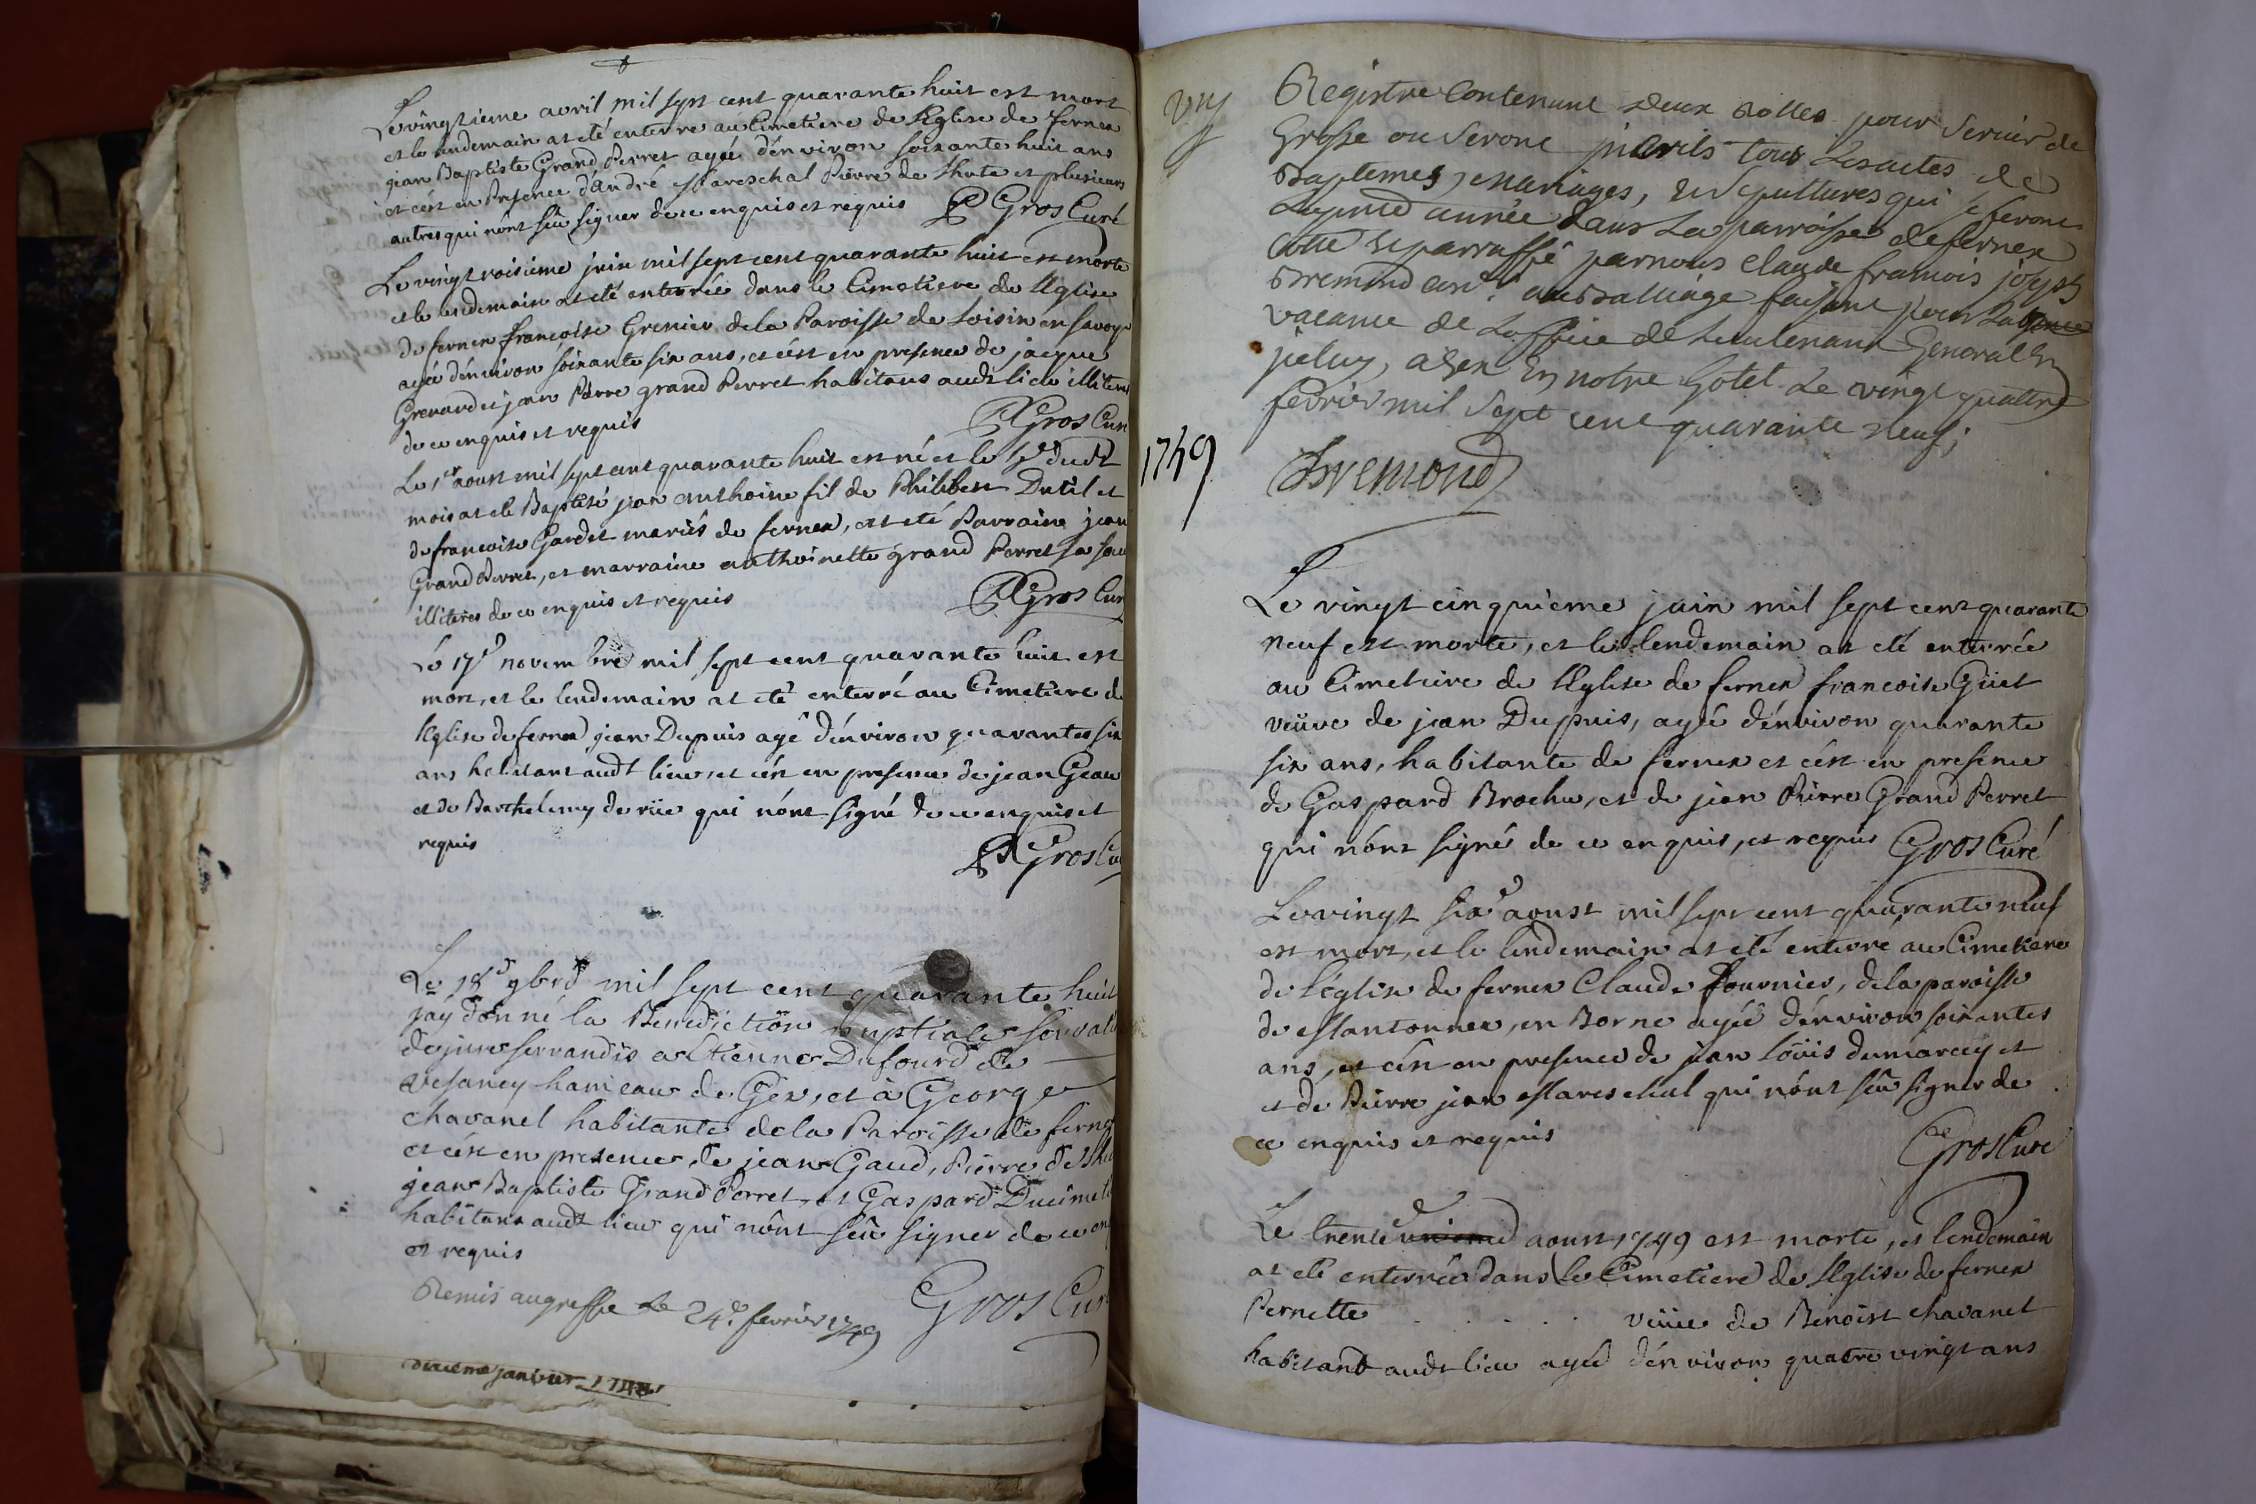 Le vingtieme avril mil sept cent quarante huit est mort
et le lendemain at eté enterre au Cimetiere de l'Eglise de fernex
jean Baptiste Grand Perret agée d'environ soixante huit ans
et c'est en Presence d'andré Mareschal Pierre de Thute et plusieurs
autres qui n'ont sçû signer de ce enquis et requis Gros Curé
Le vingt roisieme juin mil sept cent quarante huit est morte
et le lendemain at eté enterrée dans le Cimetiere de l'Eglise
de fernex francoise Grenier de la Paroisse de Loisin en Savoye
agée d'environ soixante six ans, et c'est en presence de jacque
Grenard et jean Pierre grand Perret habitans audt lieu illiteres
de ce enquis et requis Gros Cur
Le 1er aoust mil sept cent quarante huit est né et le dudt
mois at eté Baptisé jean anthoine fil de Philibert Dutil et
de francoise Gardet mariés de fernex, at eté Parrain jean
Grand Perret, et marraine anthoinette grand Perret sa soeu
illiteres de ce enquis et requis Gros Cur
Le 17e novembre mil sept cent quarante huit est
mort, et le lendemain at eté enterré au Cimetiere de
l'Eglise de fernex jean Dupuis agé d'environ quarantes six
ans habitant audt lieu, et c'est en presence de jean Geau
et de Barthelemy de rüe qui n'ont signé de ce enquis et
requis Gros Cu
Le 18e 9bre mil sept cent quarante huit
jáy donné la Benediction nuptiale servatis
de jure servandis a Etienne Dufourd de
Vesancy hameau de Gex, et à George
chavanel habitante de la Paroisse de ferne
et c'est en presence de jean Gaud, Pierre de Thu
jean Baptiste Grand Perret, et Gaspard Ducimeti
habitans audt lieu qui n'ont sçû signer de ce en
et requis
Remis au greffe Le 24e fevrier 1749 Gros Cur
dixieme janvier 1748
1749
Registre Contenant Deux Rolles pour Servir de
Grosse ou Seront inscrits tous Les actes de
Baptemes, Mariages, et Sepultures qui se feront
La presente année dans La parroisse de fernex
Cotté et parraffé par nous Claude francois joseph
Bremond Con.r au Balliage faisant pour L'absence
vacance de L'office de Lieutenant General En
jceluy, a Gex En notre hotel Le vingt quattre
fevrier mil Sept cent quarante neuf;
Bremond
Le vingt cinquieme juin mil sept cent quarante
neuf est morte, et le lendemain at eté enterrée
au Cimetiere de l'Eglise de fernex francoise Güet
veuve de jean Dupuis, agée d'environ quarante
six ans, habitante de fernex et c'est en presence
de Gaspard Brochu, et de jean Pierre Grand Perret
qui n'ont signés de ce enquis, et requis Gros Curé
Le vingt sixe aoust mil sept cent quarante neuf
est mort, et le lendemain at eté enterré au Cimetiere
de l'église de fernex Claude fournier, de la paroisse
de Mantonnex, en Borne agée d'environ soixantes
ans, et c'est en presence de jean Loüis dumarcey et
et de Pierre jean Mareschal qui n'ont sçû signer de
ce enquis et requis Gros Curé
Le trente unieme aoust 1749 est morte, et lendemain
at eté enterrée dans le Cimetiere de l'Eglise de fernex
Pernette . . . . . veüve de Benoist chavanel
habitant audt lieu agée d'environ quatre vingt ans